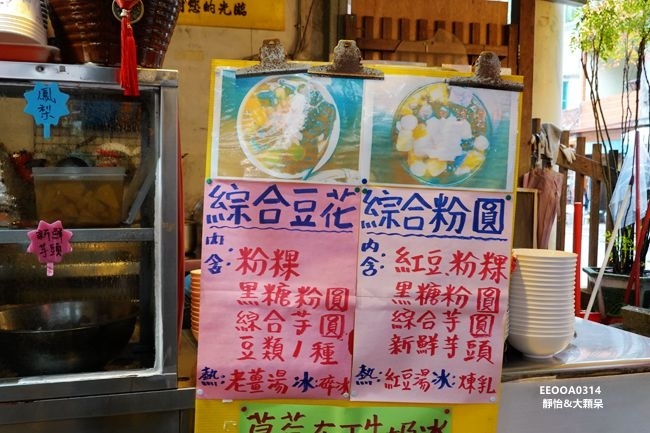 您的光臨
鳳梨
新鮮芋頭
綜合豆花
內含:
粉粿
黑糖粉圓
綜合芋圓
豆類1種
熱:老薑湯 冰:碎冰
綜合粉圓
內含:
紅豆.粉粿
黑糖粉圓
綜合芋圓
新鮮芋頭
熱:紅豆湯 冰:煉乳
EEOOA0314
靜怡&大顆呆